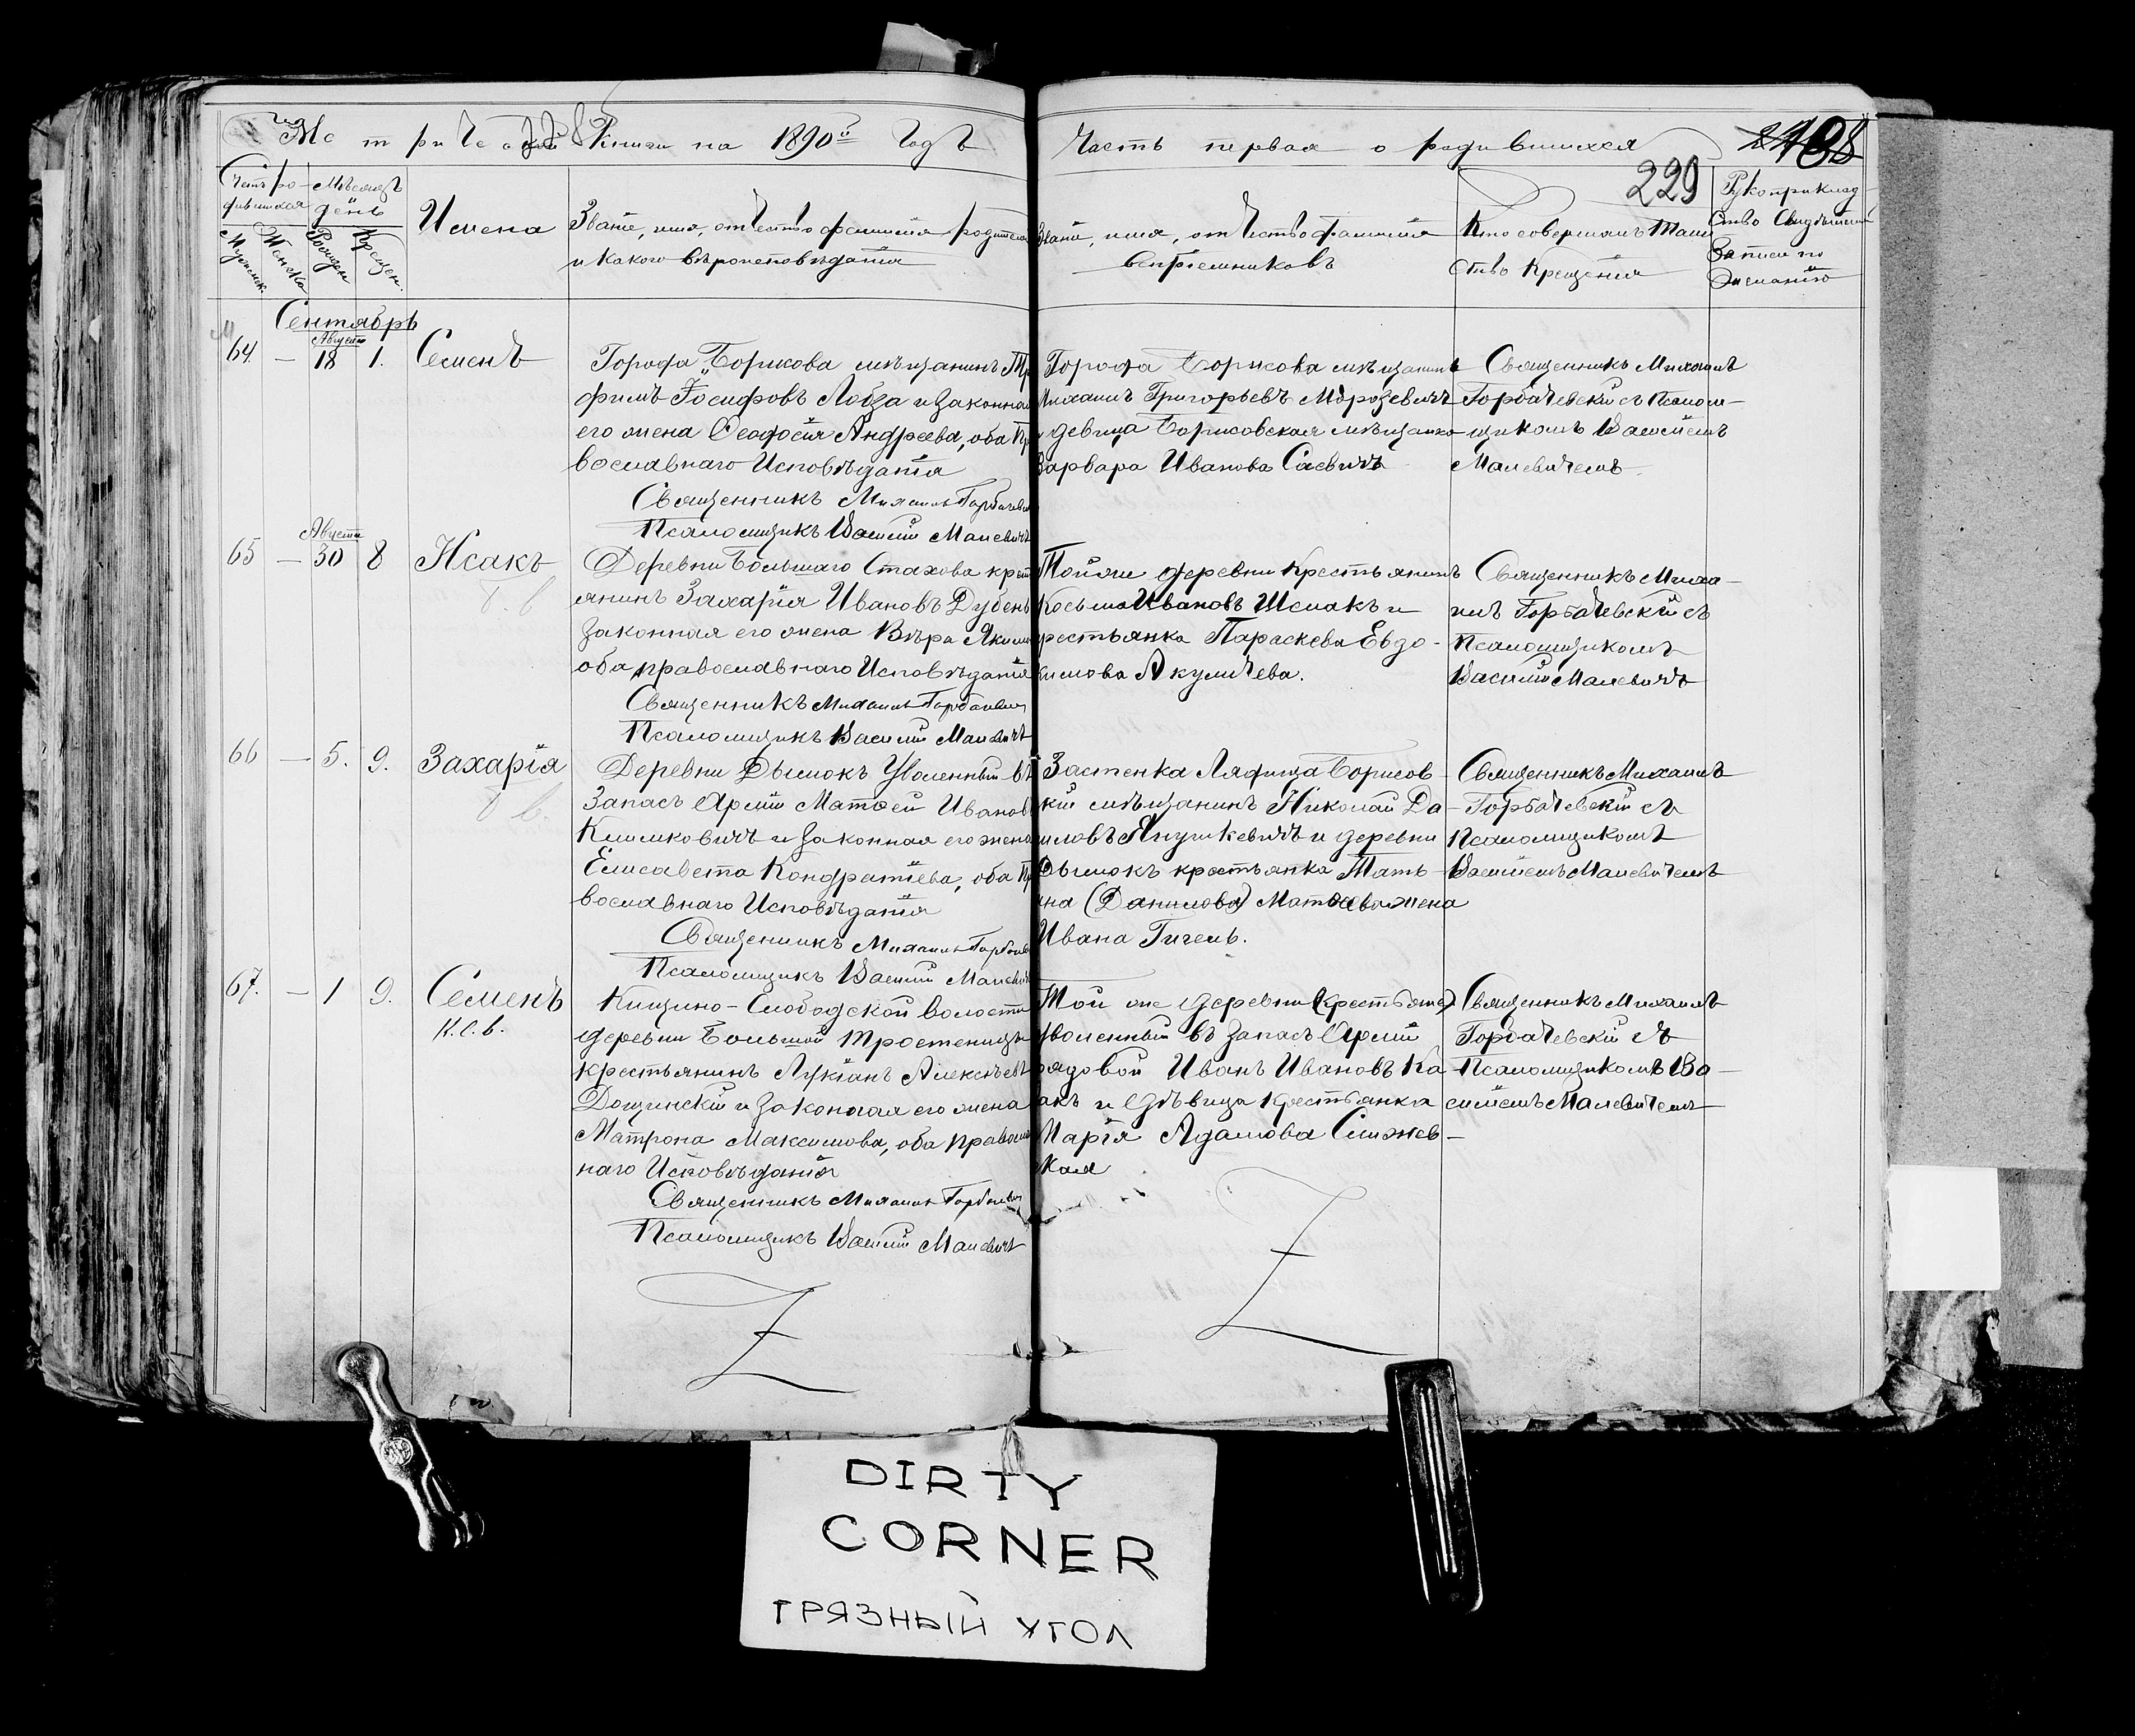 Метрической Книги на 1890й Годъ
Часть первая о родившихся
229
Счетъ ро-
дившихся
Мѣсяцъ
день
Мужеск.
Женска
Рожден
Крещен.
Имена
Званіе, имя, отчество фамилія родителей
и какого вѣроисповѣданія
Званіе, имя, отчество фамилія
воспріемниковъ
Кто совершалъ Таин
ство Крещенія
Рукоприклад-
ство Свидѣтелей
Записи по
Желанію
Сентябрь
64. — Августа 18 1. Семенъ
Города Борисова мѣщанинъ Тро
фимъ Іосифовъ Лобза и законная
его жена Ѳеодосія Андреева, оба Пра
вославнаго Исповѣданія
Священникъ Михаилъ Горбачевскій
Псаломщикъ Василій Малевичъ
Города Борисова мѣщанинъ
Михаилъ Григорьевъ Морозевичъ
и девица Борисовская мѣщанка
Варвара Иванова Савичъ
Священникъ Михаилъ
Горбачевскій съ Псалом-
щикомъ Василіемъ
Малевичемъ.
65 — Августа 30 8 Исакъ
Деревни Большаго Стахова крест
янинъ Захарія Ивановъ Дубень
законная его жена Вѣра Якимо
оба православнаго Исповѣданія
Священникъ Михаилъ Горбачевскій
Псаломщикъ Василій Малевичъ
Тойже деревни Крестьянинъ
Косьма Ивановъ Шпакъ и
крестьянка Параскева Евдо-
кимова Акуличева.
Священникъ Миха-
илъ Горбачевскій съ
Псаломщикомъ
Василій Малевичъ
66 — 5. 9. Захарія
Деревни Дымокъ Уволенный въ
Запасъ Арміи Матѳей Ивановъ
Климковичъ и законная его жена
Елисавета Кондратіева, оба Пра
вославнаго Исповѣданія
Священникъ Михаилъ Горбачев
Псаломщикъ Василій Малевичъ
Застенка Лядища Борисов-
кій мѣщанинъ Николай Да-
ниловъ Янушкевичъ и деревни
Дымокъ крестьянка Тать-
яна (Данилова) Матѳеева жена
Ивана Гигель.
Священникъ Михаилъ
Горбачевскій съ
Псаломщикомъ
Василіемъ Малевичемъ
67. — 1 9. Семенъ
Н.С.в.
Кищино-Слободской волости
деревни Большой Тростеницы
крестьянинъ Лукіанъ Алексѣевъ
Дощинскій и законная его жена
Матрона Максимова, оба Правосла
наго Исповѣданія
Священникъ Михаилъ Горбачевскій
Псаломщикъ Василій Малевичъ
Той же деревни (крестьяне)
Уволенный въ запасъ Арміи
рядовой Иванъ Ивановъ Ка
акъ и дѣвица крестьянка
Марія Адамова Сližнев-
кая
Священникъ Михаилъ
Горбачевскій съ
Псаломщикомъ Ва-
силіемъ Малевичемъ
DIRTY
CORNER
ГРЯЗНЫЙ УГОЛ